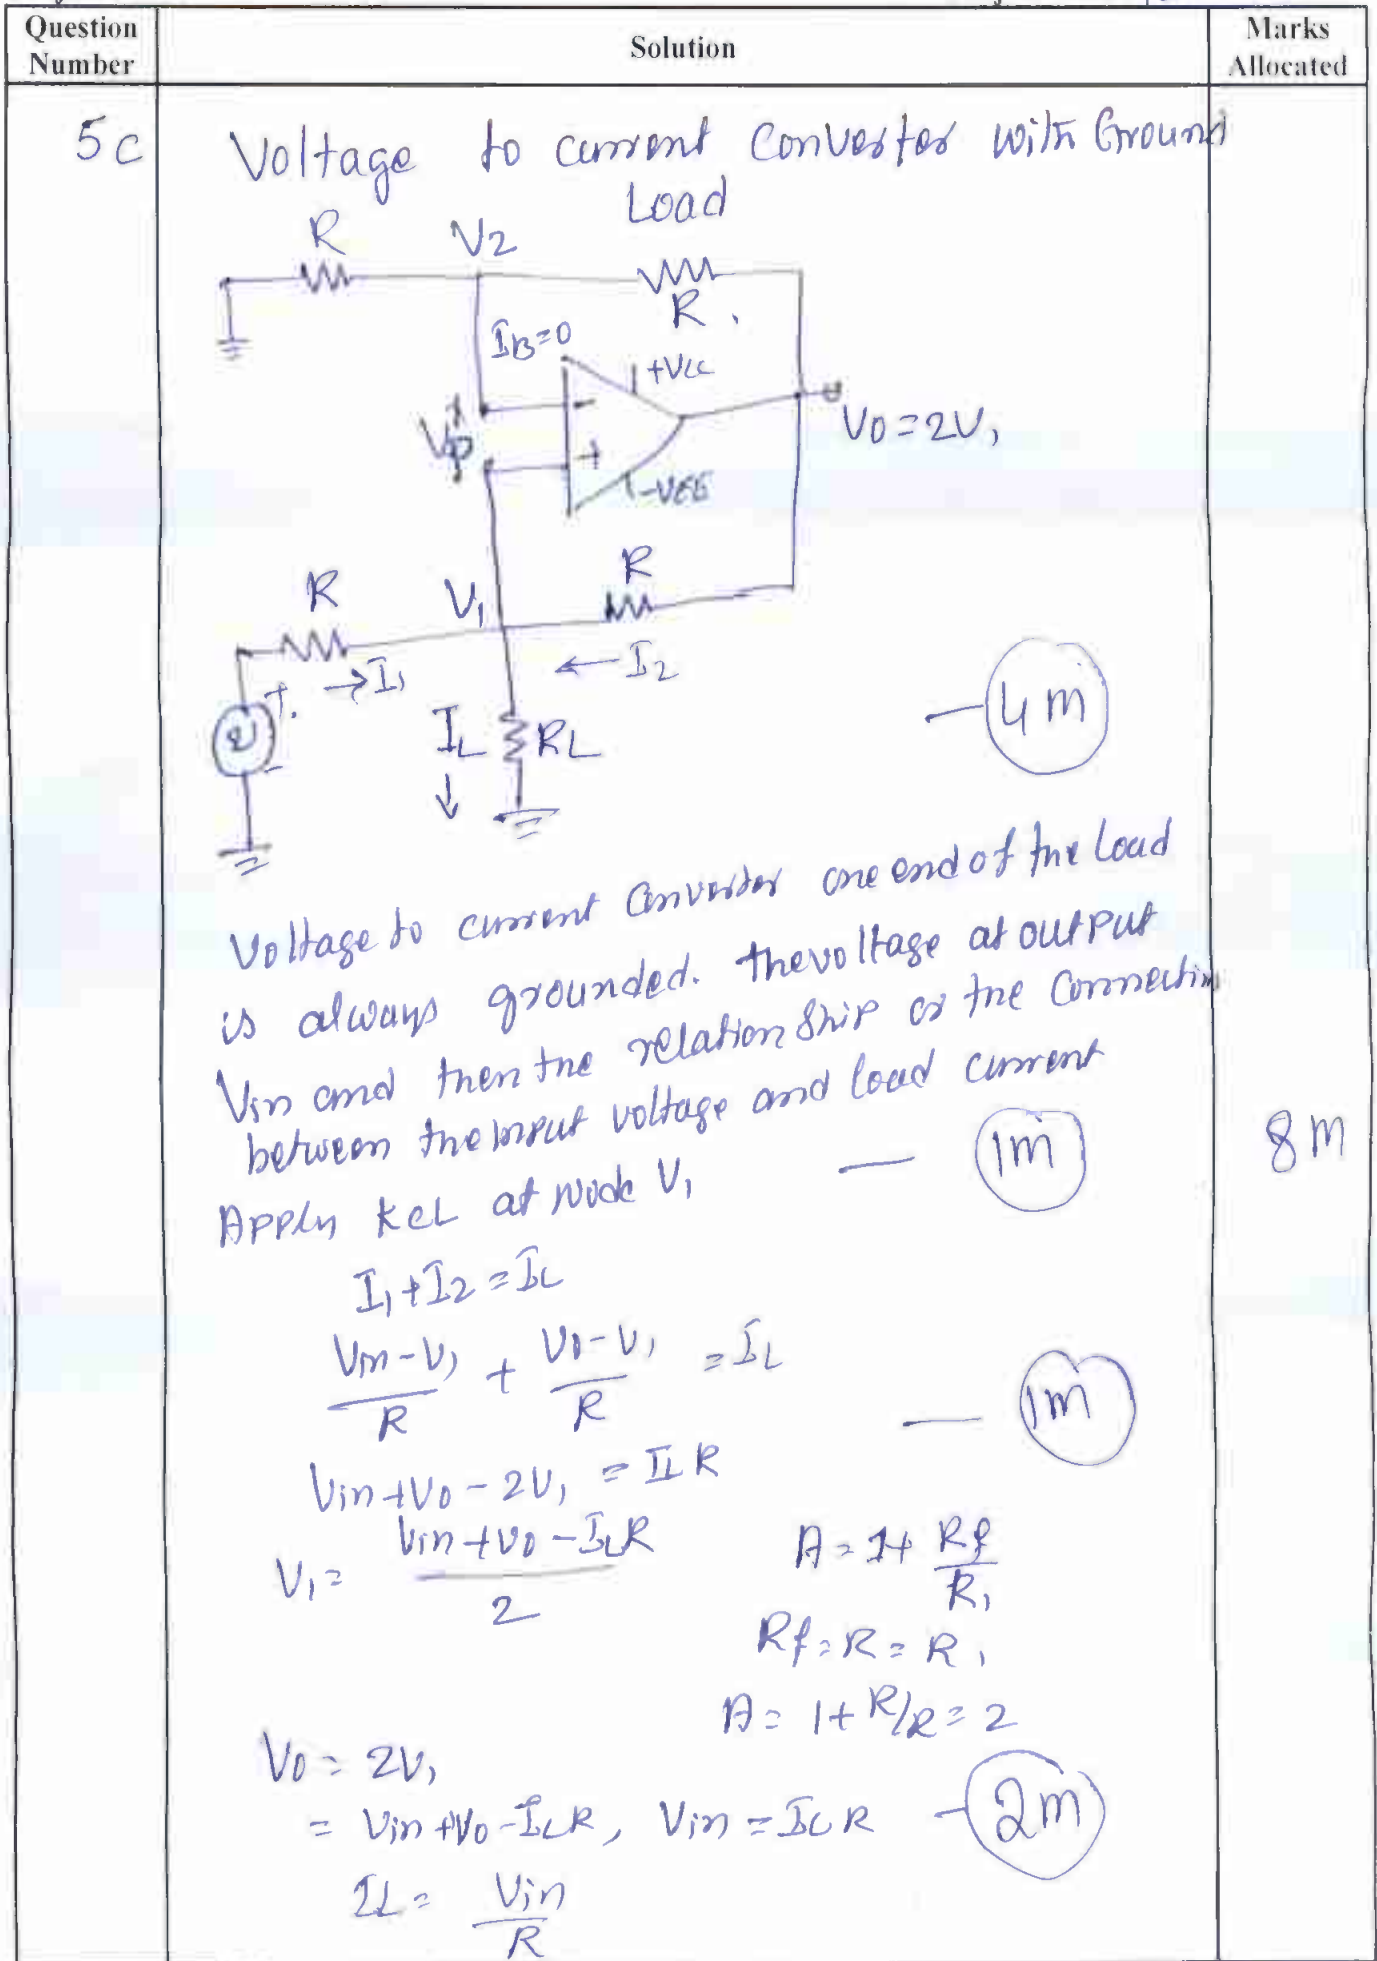 Question Number
Solution
Marks Allocated
5c
Voltage to current Convertor with Ground
Load
R
V2
R
IB=0
+VCC
-
+
-VEE
V0=2V1
R
V1
R
→I1
←I2
+
-
IL
↓
RL
—4m
Voltage to current Convertor one end of the Load
is always grounded. the voltage at output
Vin and then the relation ship or the Connection
between the input voltage and load current
—1m
8M
Apply KCL at Node V1
I1+I2=IL
Vin-V1/R + V0-V1/R =IL
—1m
Vin+V0-2V1=ILR
V1= Vin+V0-ILR/2
A=1+Rf/R1
Rf=R=R1
A=1+R/R=2
V0=2V1
=Vin+V0-ILR, Vin=ILR -2m
IL= Vin/R